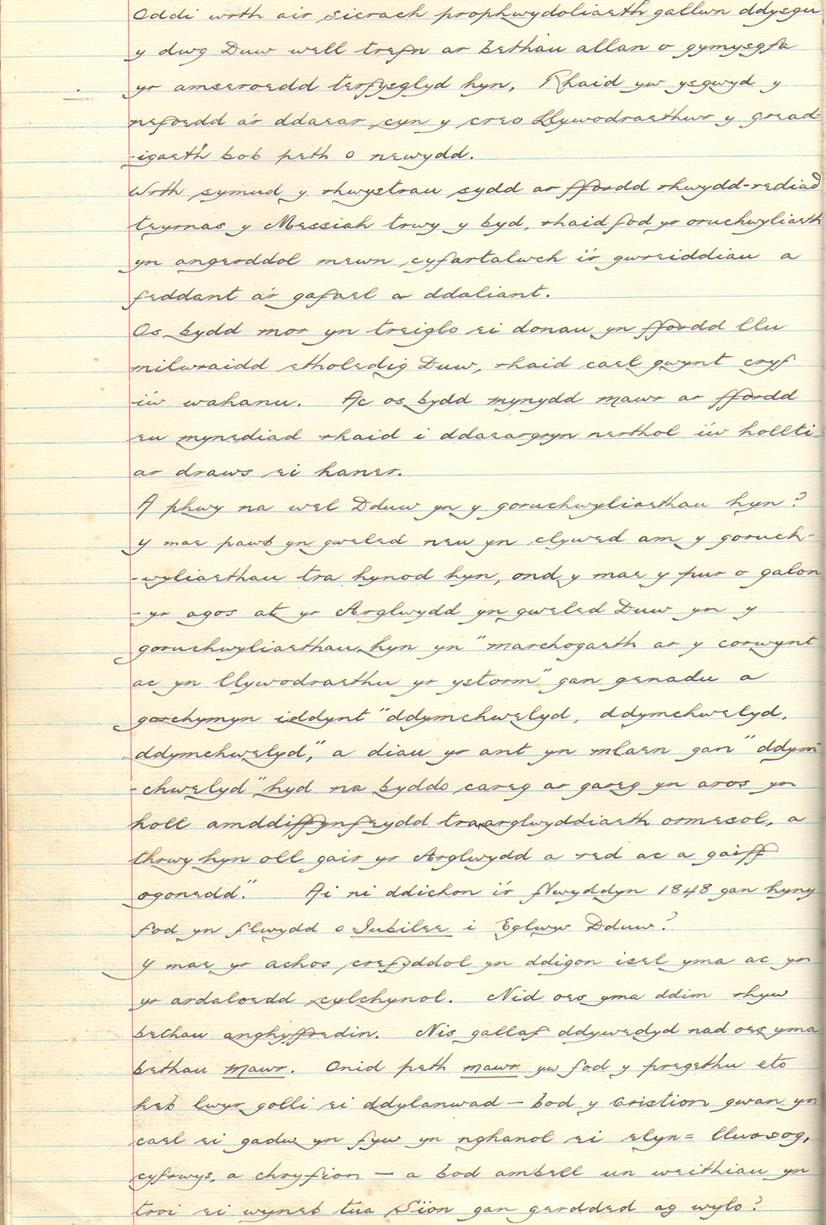 Oddi wrth air sicrach prophwydoliaeth gallwn ddysgu
y dwg Duw well trefn ar bethau allan o gymysgfa
yr amseroedd terfysglyd hyn. Rhaid yw ysgwyd y
nefoedd a'r ddaear cyn y creo Llywodraethwr y gread-
-igaeth bob peth o newydd.
Wrth symud y rhwystrau sydd ar ffordd rhwydd-rediad
teyrnas y Messiah trwy y byd, rhaid fod yr oruchwyliaeth
yn angerddol mewn cyfartalwch i'r gwreiddiau a
feddant a'r gafael a ddaliant.
Os bydd mor yn treiglo ei donau yn ffordd llu
milwraidd etholedig Duw, rhaid cael gwynt cryf
i'w wahanu. Ac os bydd mynydd mawr ar ffordd
eu mynediad rhaid i ddaeargryn nerthol i'w hollti
ar draws ei haner.
A phwy na wel Dduw yn y goruchwyliaethau hyn?
Y mae pawb yn gweled neu yn clywed am y goruch-
-wyliaethau tra hynod hyn, ond y mae y pur o galon
-yr agos at yr Arglwydd yn gweled Duw yn y
goruchwyliaethau hyn yn "marchogaeth ar y corwynt
ac yn llywodraethu yr ystorm" gan genadu a
gorchymyn iddynt "ddymchwelyd, ddymchwelyd,
ddymchwelyd," a diau yr ant yn mlaen gan "ddym-
-chwelyd" hyd na byddo careg ar gareg yn aros yn
holl amddiffynfeydd traarglwyddiaeth ormesol, a
thrwy hyn oll gair yr Arglwydd a red ac a gaiff
ogonedd." Ai ni ddichon i'r flwyddyn 1848 gan hyny
fod yn flwydd o Jubilee i Eglwys Dduw?
Y mae yr achos crefyddol yn ddigon isel yma ac yn
yr ardaloedd cylchynol. Nid oes yma ddim rhyw
bethau anghyffredin. Nis gallaf ddywedyd nad oes yma
bethau mawr. Onid peth mawr yw fod y pregethu eto
heb lwyr golli ei ddylanwad — bod y Cristion gwan yn
cael ei gadw yn fyw yn nghanol ei elyn= lluosog,
cyfrwys, a chryfion — a bod ambell un weithiau yn
troi ei wyneb tua Sïon gan gerdded ag wylo?